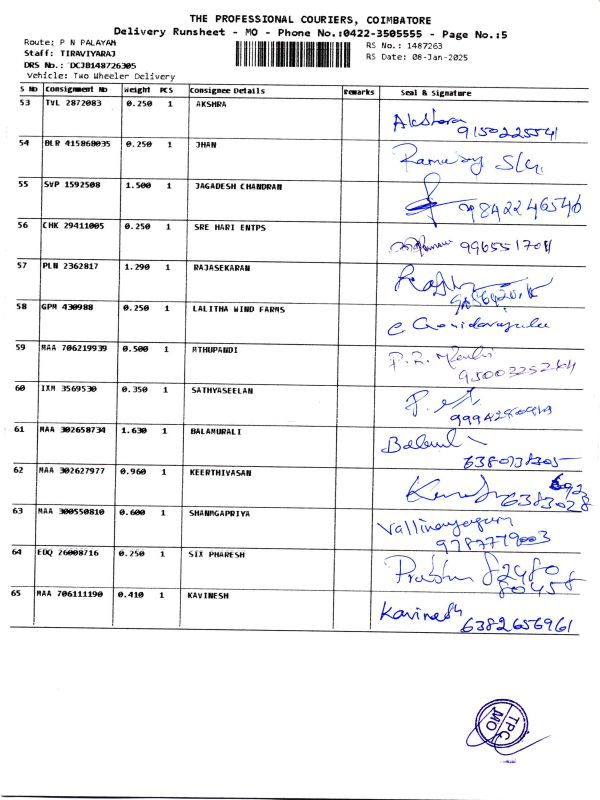 THE PROFESSIONAL COURIERS, COIMBATORE
Delivery Runsheet - MO - Phone No.:0422-3505555 - Page No.:5
Route: P N PALAYAM RS No.: 1487263
Staff: TIRAVIYARAJ RS Date: 08-Jan-2025
DRS No.: DCJB148726305
Vehicle: Two Wheeler Delivery
S No Consignment No Weight PCS Consignee Details Remarks Seal & Signature
53 TVL 2872083 0.250 1 AKSHRA
Akshara
9150225541
54 BLR 415868035 0.250 1 JHAN
55 SVP 1592508 1.500 1 JAGADESH CHANDRAN
9842246546
56 CHK 29411005 0.250 1 SRE HARI ENTPS
57 PLN 2362817 1.290 1 RAJASEKARAN
58 GPM 430988 0.250 1 LALITHA WIND FARMS
59 MAA 706219939 0.500 1 MTHUPANDI
60 IXM 3569530 0.350 1 SATHYASEELAN
61 MAA 302658734 1.630 1 BALAMURALI
62 MAA 302627977 0.960 1 KEERTHIVASAN
63 MAA 300550810 0.600 1 SHANMGAPRIYA
Vallinayagam
9787779003
64 EDQ 26008716 0.250 1 SIX PHARESH
82480
80458
65 MAA 706111190 0.410 1 KAVINESH
Kavinesh
6382656961
TPC
MO